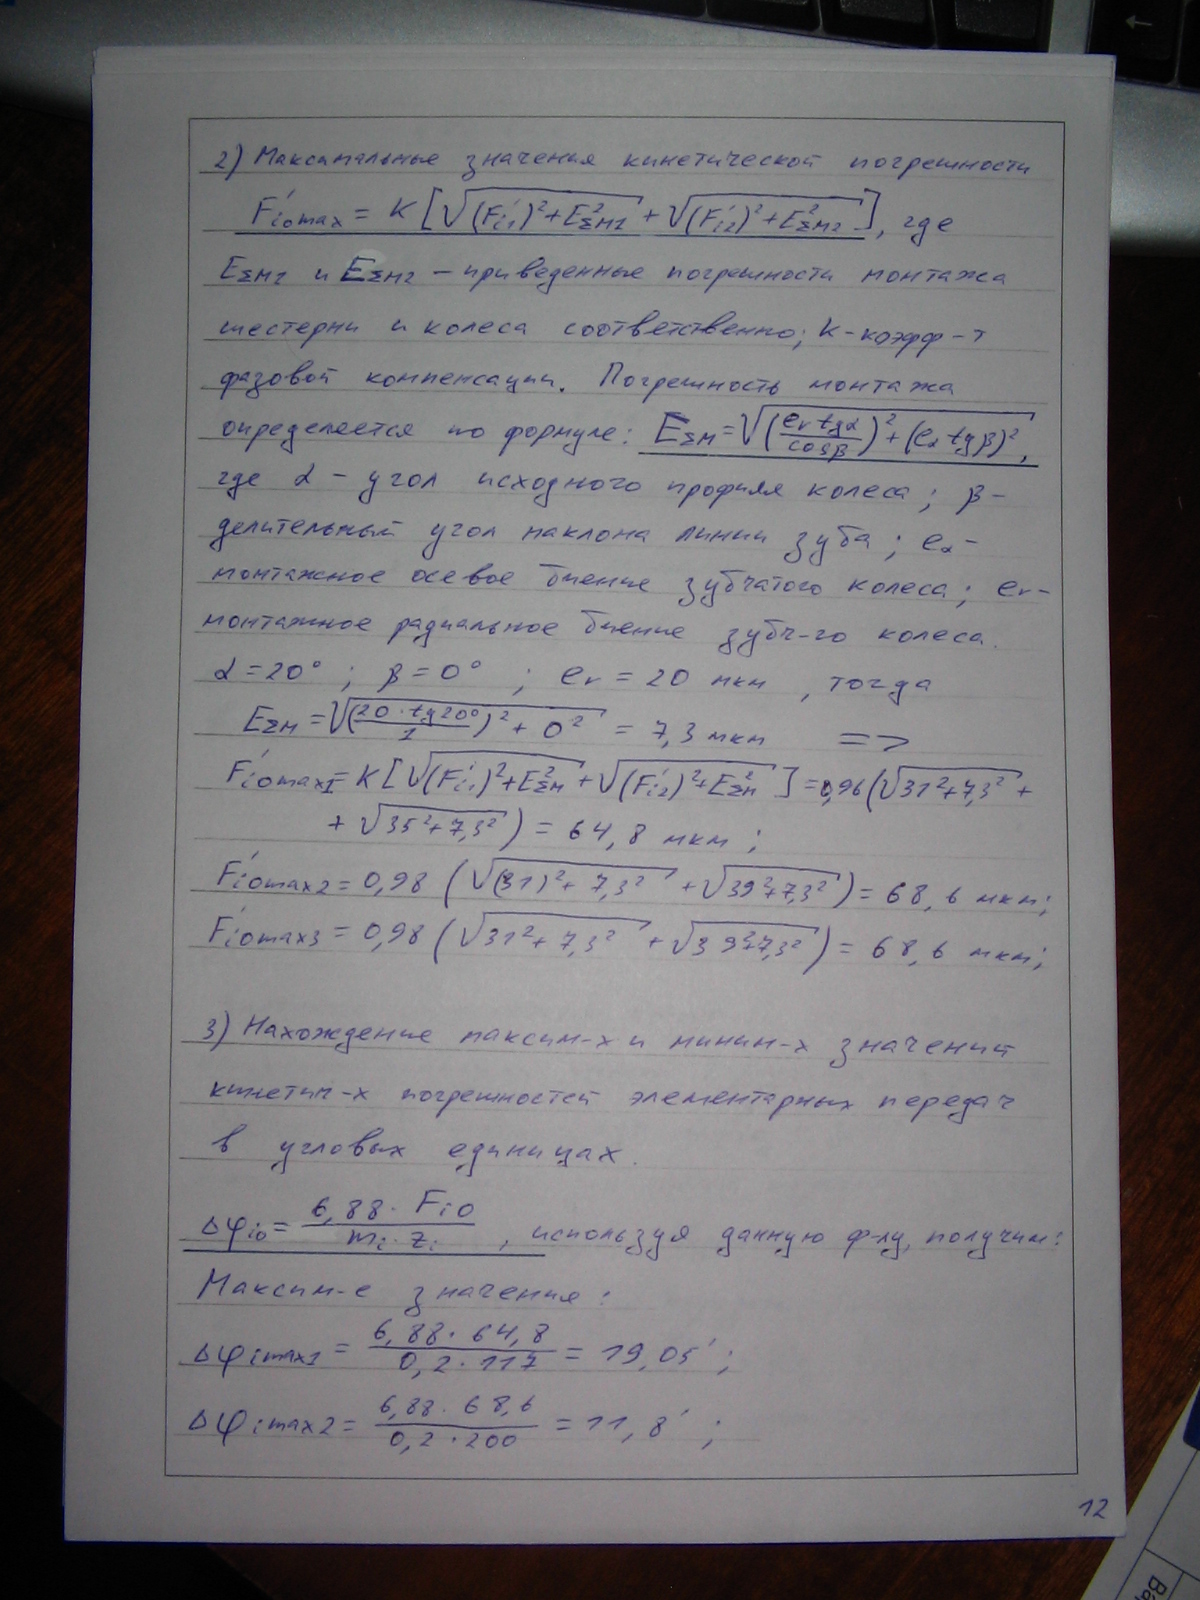 2) Максимальные значения кинетической погрешности
F'i0max = K [√((F'i1)² + E²ΣM1) + √((F'i2)² + E²ΣM2)], где
EΣM1 и EΣM2 – приведенные погрешности монтажа
шестерни и колеса соответственно; K – коэфф-т
фазовой компенсации. Погрешность монтажа
определяется по формуле: EΣM = √((er tgα / cosβ)² + (eα tgβ)²),
где α – угол исходного профиля колеса; β –
делительный угол наклона линии зуба; eα –
монтажное осевое биение зубчатого колеса; er –
монтажное радиальное биение зубч-го колеса.
α = 20° ; β = 0° ; er = 20 мкм , тогда
EΣM = √((20 · tg20° / 1)² + 0²) = 7,3 мкм =>
F'i0max1 = K [√((F'i1)² + E²ΣM) + √((F'i2)² + E²ΣM)] = 0,96 (√(31² + 7,3²) +
+ √(35² + 7,3²)) = 64,8 мкм ;
F'i0max2 = 0,98 (√((31)² + 7,3²) + √(39² + 7,3²)) = 68,6 мкм;
F'i0max3 = 0,98 (√(31² + 7,3²) + √(39² + 7,3²)) = 68,6 мкм;
3) Нахождение максим-х и миним-х значений
кинетич-х погрешностей элементарных передач
в угловых единицах.
Δφi0 = 6,88 · Fi0 / mi · zi , используя данную ф-лу, получим:
Максим-е значения:
Δφimax1 = 6,88 · 64,8 / 0,2 · 117 = 19,05' ;
Δφimax2 = 6,88 · 68,6 / 0,2 · 200 = 11,8' ;
12
Ва